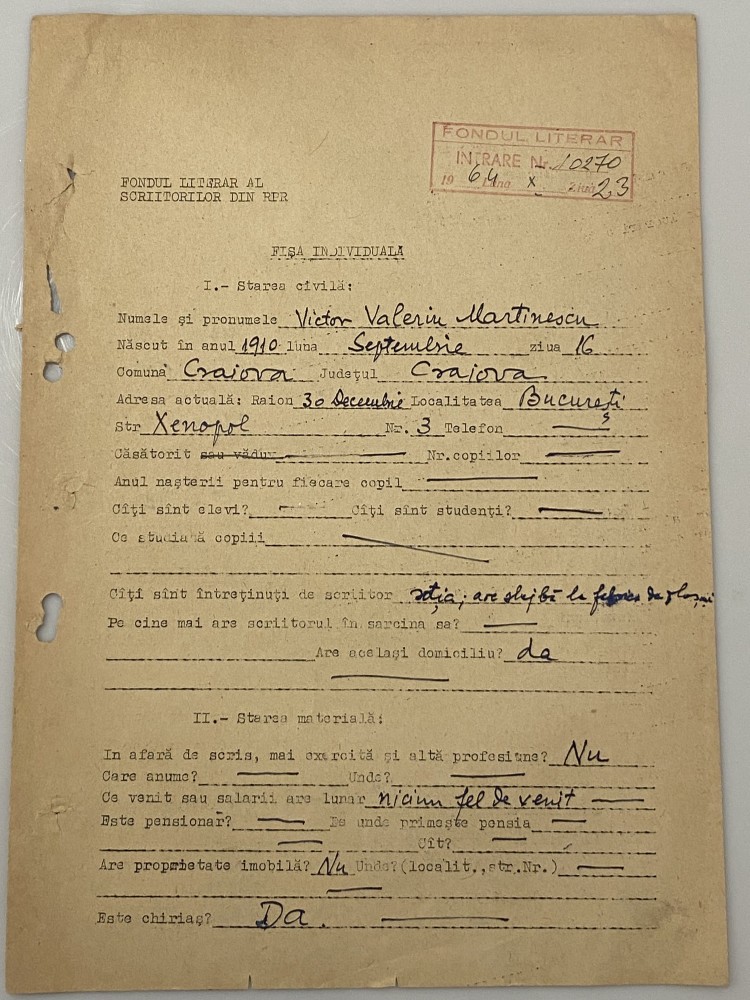 FONDUL LITERAR
INTRARE Nr. 10270
19 64 luna X ziua 23
FONDUL LITERAR AL
SCRIITORILOR DIN RPR
FIȘA INDIVIDUALĂ
I.- Starea civilă:
Numele și pronumele Victor Valeriu Martinescu
Născut în anul 1910 luna Septembrie ziua 16
Comuna Craiova Județul Craiova
Adresa actuală: Raion 30 Decembrie Localitatea București
Str Xenopol Nr. 3 Telefon —
Căsătorit sau văduv — Nr.copiilor —
Anul nașterii pentru fiecare copil —
Cîți sînt elevi? — Cîți sînt studenți? —
Ce studiază copiii —
Cîți sînt întreținuți de scriitor soția; are slujbă la fabrica de
Pe cine mai are scriitorul în sarcina sa? —
Are același domiciliu? da
—
II.- Starea materială:
In afară de scris, mai exercită și altă profesiune? Nu
Care anume? — Unde? —
Ce venit sau salarii are lunar niciun fel de venit —
Este pensionar? — De unde primește pensia —
— Cît? —
Are proprietate imobilă? Nu Unde?(localit.,str.Nr.) —
—
Este chiriaș? Da. —